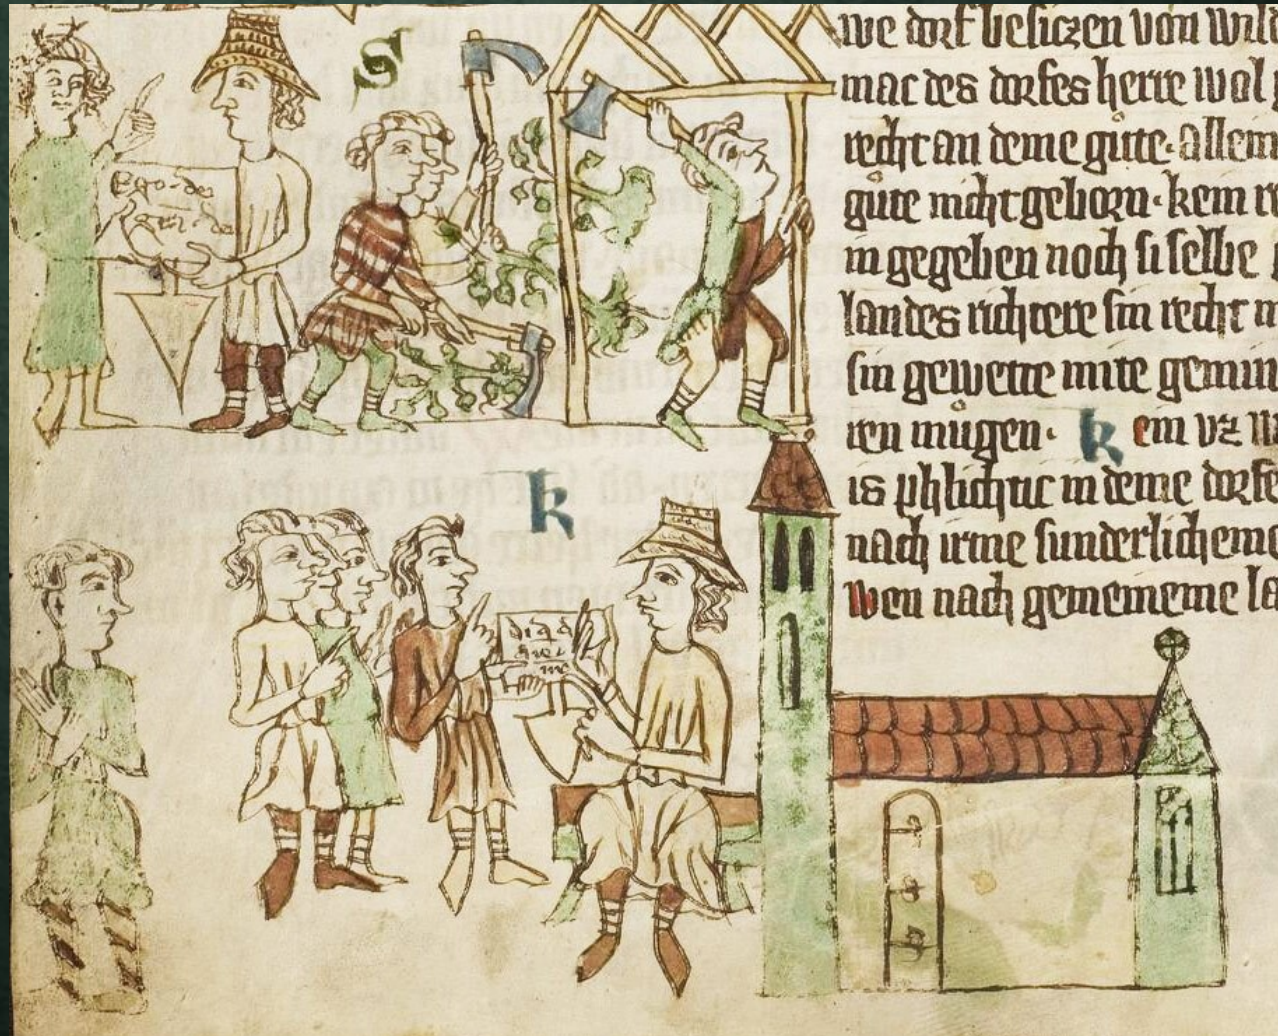 S
Ego · dei
we dorf besiczen von
mac des dorfes herre wol
recht an deme gůte · allein
gůte nicht geborn · kein
in gegeben noch si selbe
landes richtere sin recht
sin gewette mite
ren můgen · k ein vz
is phlichtic in deme dorfe
nach irme sunderlicheme
wen nach gemeineme
k